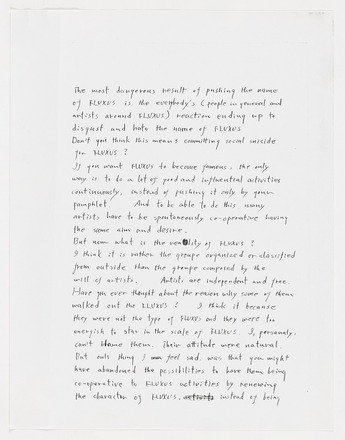 The most dangerous result of pushing the name
of FLUXUS is the everybody's (people in general and
artists around FLUXUS) reaction ending up to
disgust and hate the name of FLUXUS
Don't you think this means committing social suicide
for FLUXUS?
If you want FLUXUS to become famous, the only
way is to do a lot of good and influential activities
continuously, instead of pushing it only by your
pamphlet. And to be able to do this many
artists have to be spontaneously co-operative having
the same aim and desire.
But now what is the reality of FLUXUS?
I think it is rather the groupe organised or classified
from outside than the groupe composed by the
will of artists. Artists are independent and free.
Have you ever thought about the reason why some of them
walked out the FLUXUS? I think it because
they were not the type of FLUXUS and they were too
to stay in the scale of FLUXUS. I, personaly,
can't blame them. Their attitude were natural.
But only thing I feel sad, was that you might
have abandoned the possibilities to have them being
co-operative to FLUXUS activities by renewing
the character of FLUXUS, instead of being